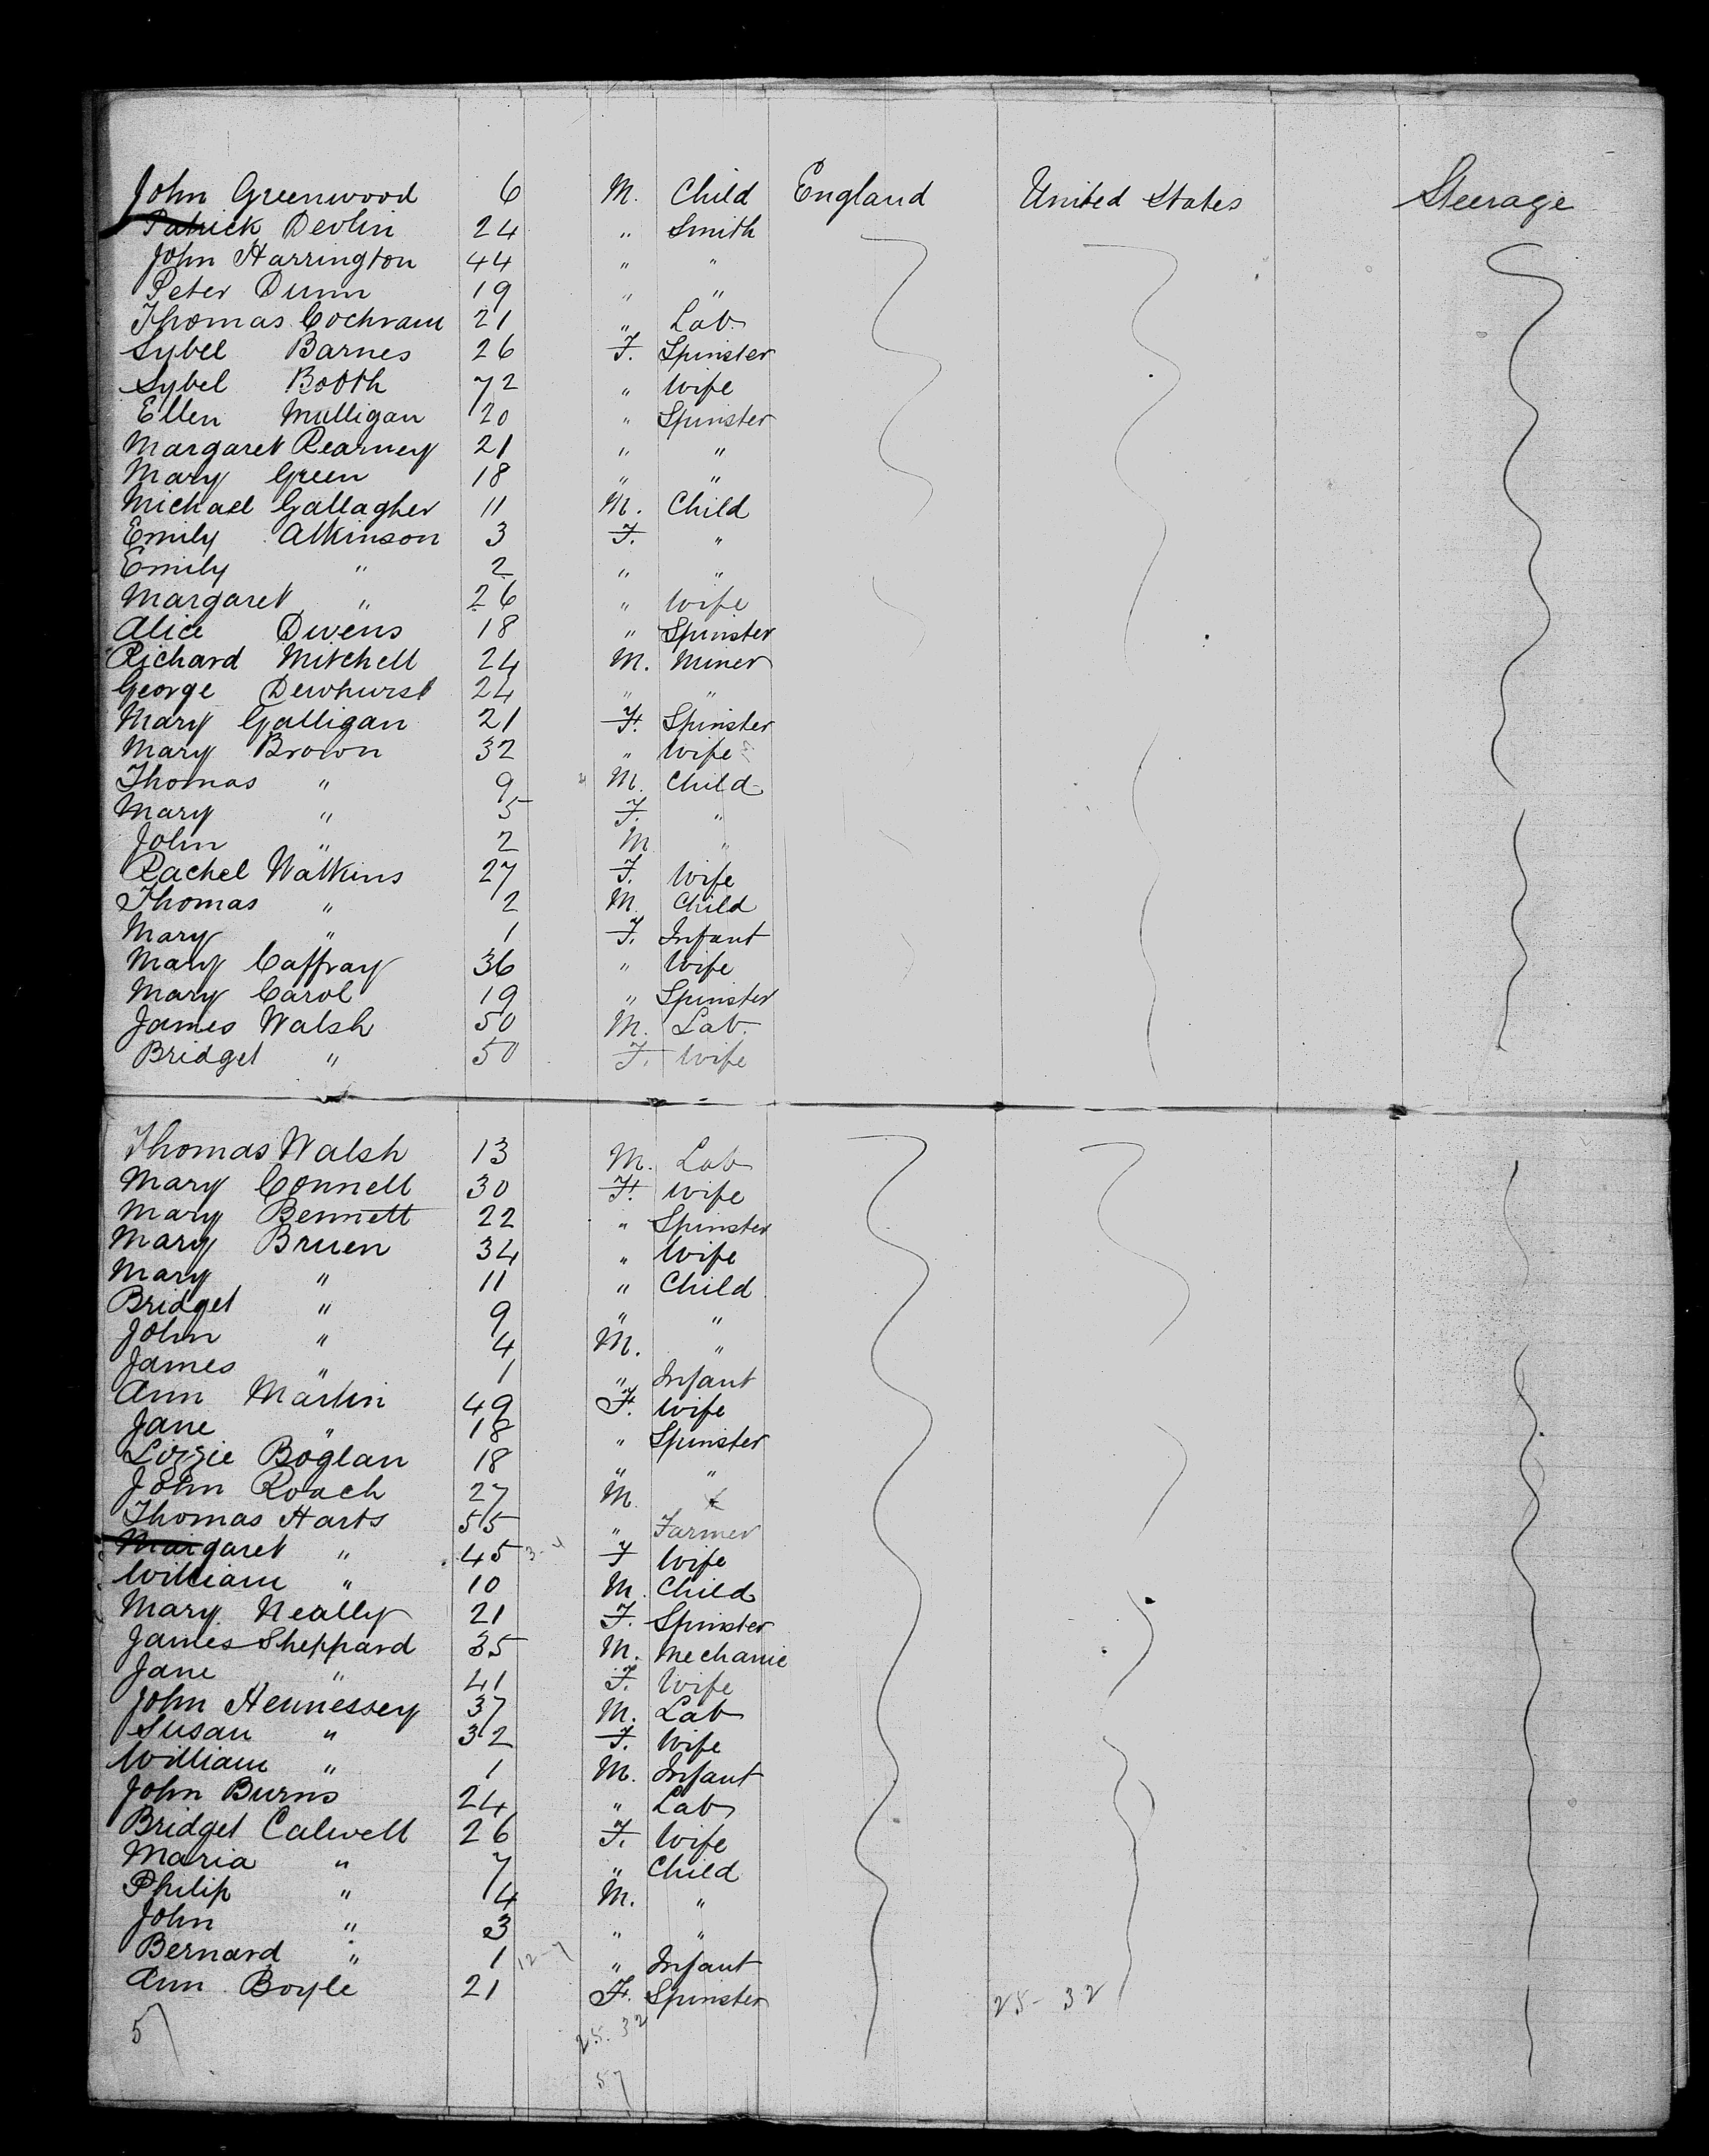 John Greenwood 6 M. Child England United States Steerage
Patrick Devlin 24 " Smith
John Harrington 44 " "
Peter Dunn 19 " "
Thomas Cochram 21 " Lab.
Sybel Barnes 26 F. Spinster
Sybel Booth 72 " Wife
Ellen Mulligan 20 " Spinster
Margaret Rearney 21 " "
Mary Green 18 " "
Michael Gallagher 11 M. Child
Emily Atkinson 3 F. "
Emily " 2 " "
Margaret " 26 " Wife
Alice Owens 18 " Spinster
Richard Mitchell 24 M. Miner
George Dewhurst 24 " "
Mary Galligan 21 F. Spinster
Mary Brown 32 " Wife
Thomas " 9 M. Child
Mary " 5 F. "
John " 2 M "
Rachel Watkins 27 F. Wife
Thomas " 2 M. Child
Mary " 1 F. Infant
Mary Caffray 36 " Wife
Mary Carol 19 " Spinster
James Walsh 50 M. Lab.
Bridget " 50 F. Wife
Thomas Walsh 13 M. Lab
Mary Connell 30 F. Wife
Mary Bennett 22 " Spinster
Mary Bruen 34 " Wife
Mary " 11 " Child
Bridget " 9 " "
John " 4 M. "
James " 1 " Infant
Ann Martin 49 F. Wife
Jane " 18 " Spinster
Lizzie Boglan 18 " "
John Roach 27 M.
Thomas Harts 55 " Farmer
Margaret " 45 F Wife
William " 10 M. Child
Mary Neally 21 F. Spinster
James Sheppard 35 M. Mechanic
Jane " 41 F. Wife
John Hennessey 37 M. Lab
Susan " 32 F. Wife
William " 1 M. Infant
John Burns 24 " Lab
Bridget Calwell 26 F. Wife
Maria " 7 " Child
Philip " 4 M. "
John " 3 " "
Bernard " 1 12-7 " Infant
Ann Boyle 21 F. Spinster 25-32
57 25.32
57